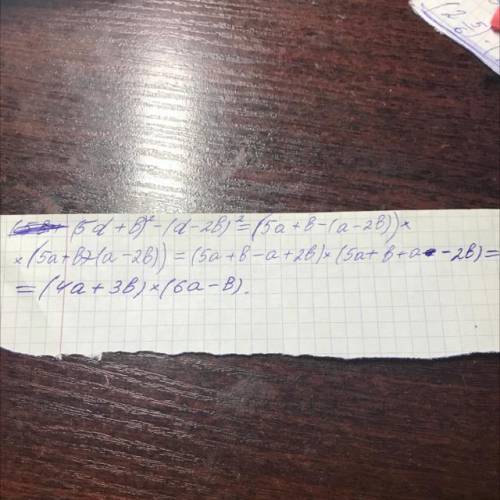 (5a+b)²-(a-2b)²=(5a+b-(a-2b))×
×(5a+b)+(a-2b))=(5a+b-a+2b)×(5a+b+a-2b)=
=(4a+3b)×(6a-b).